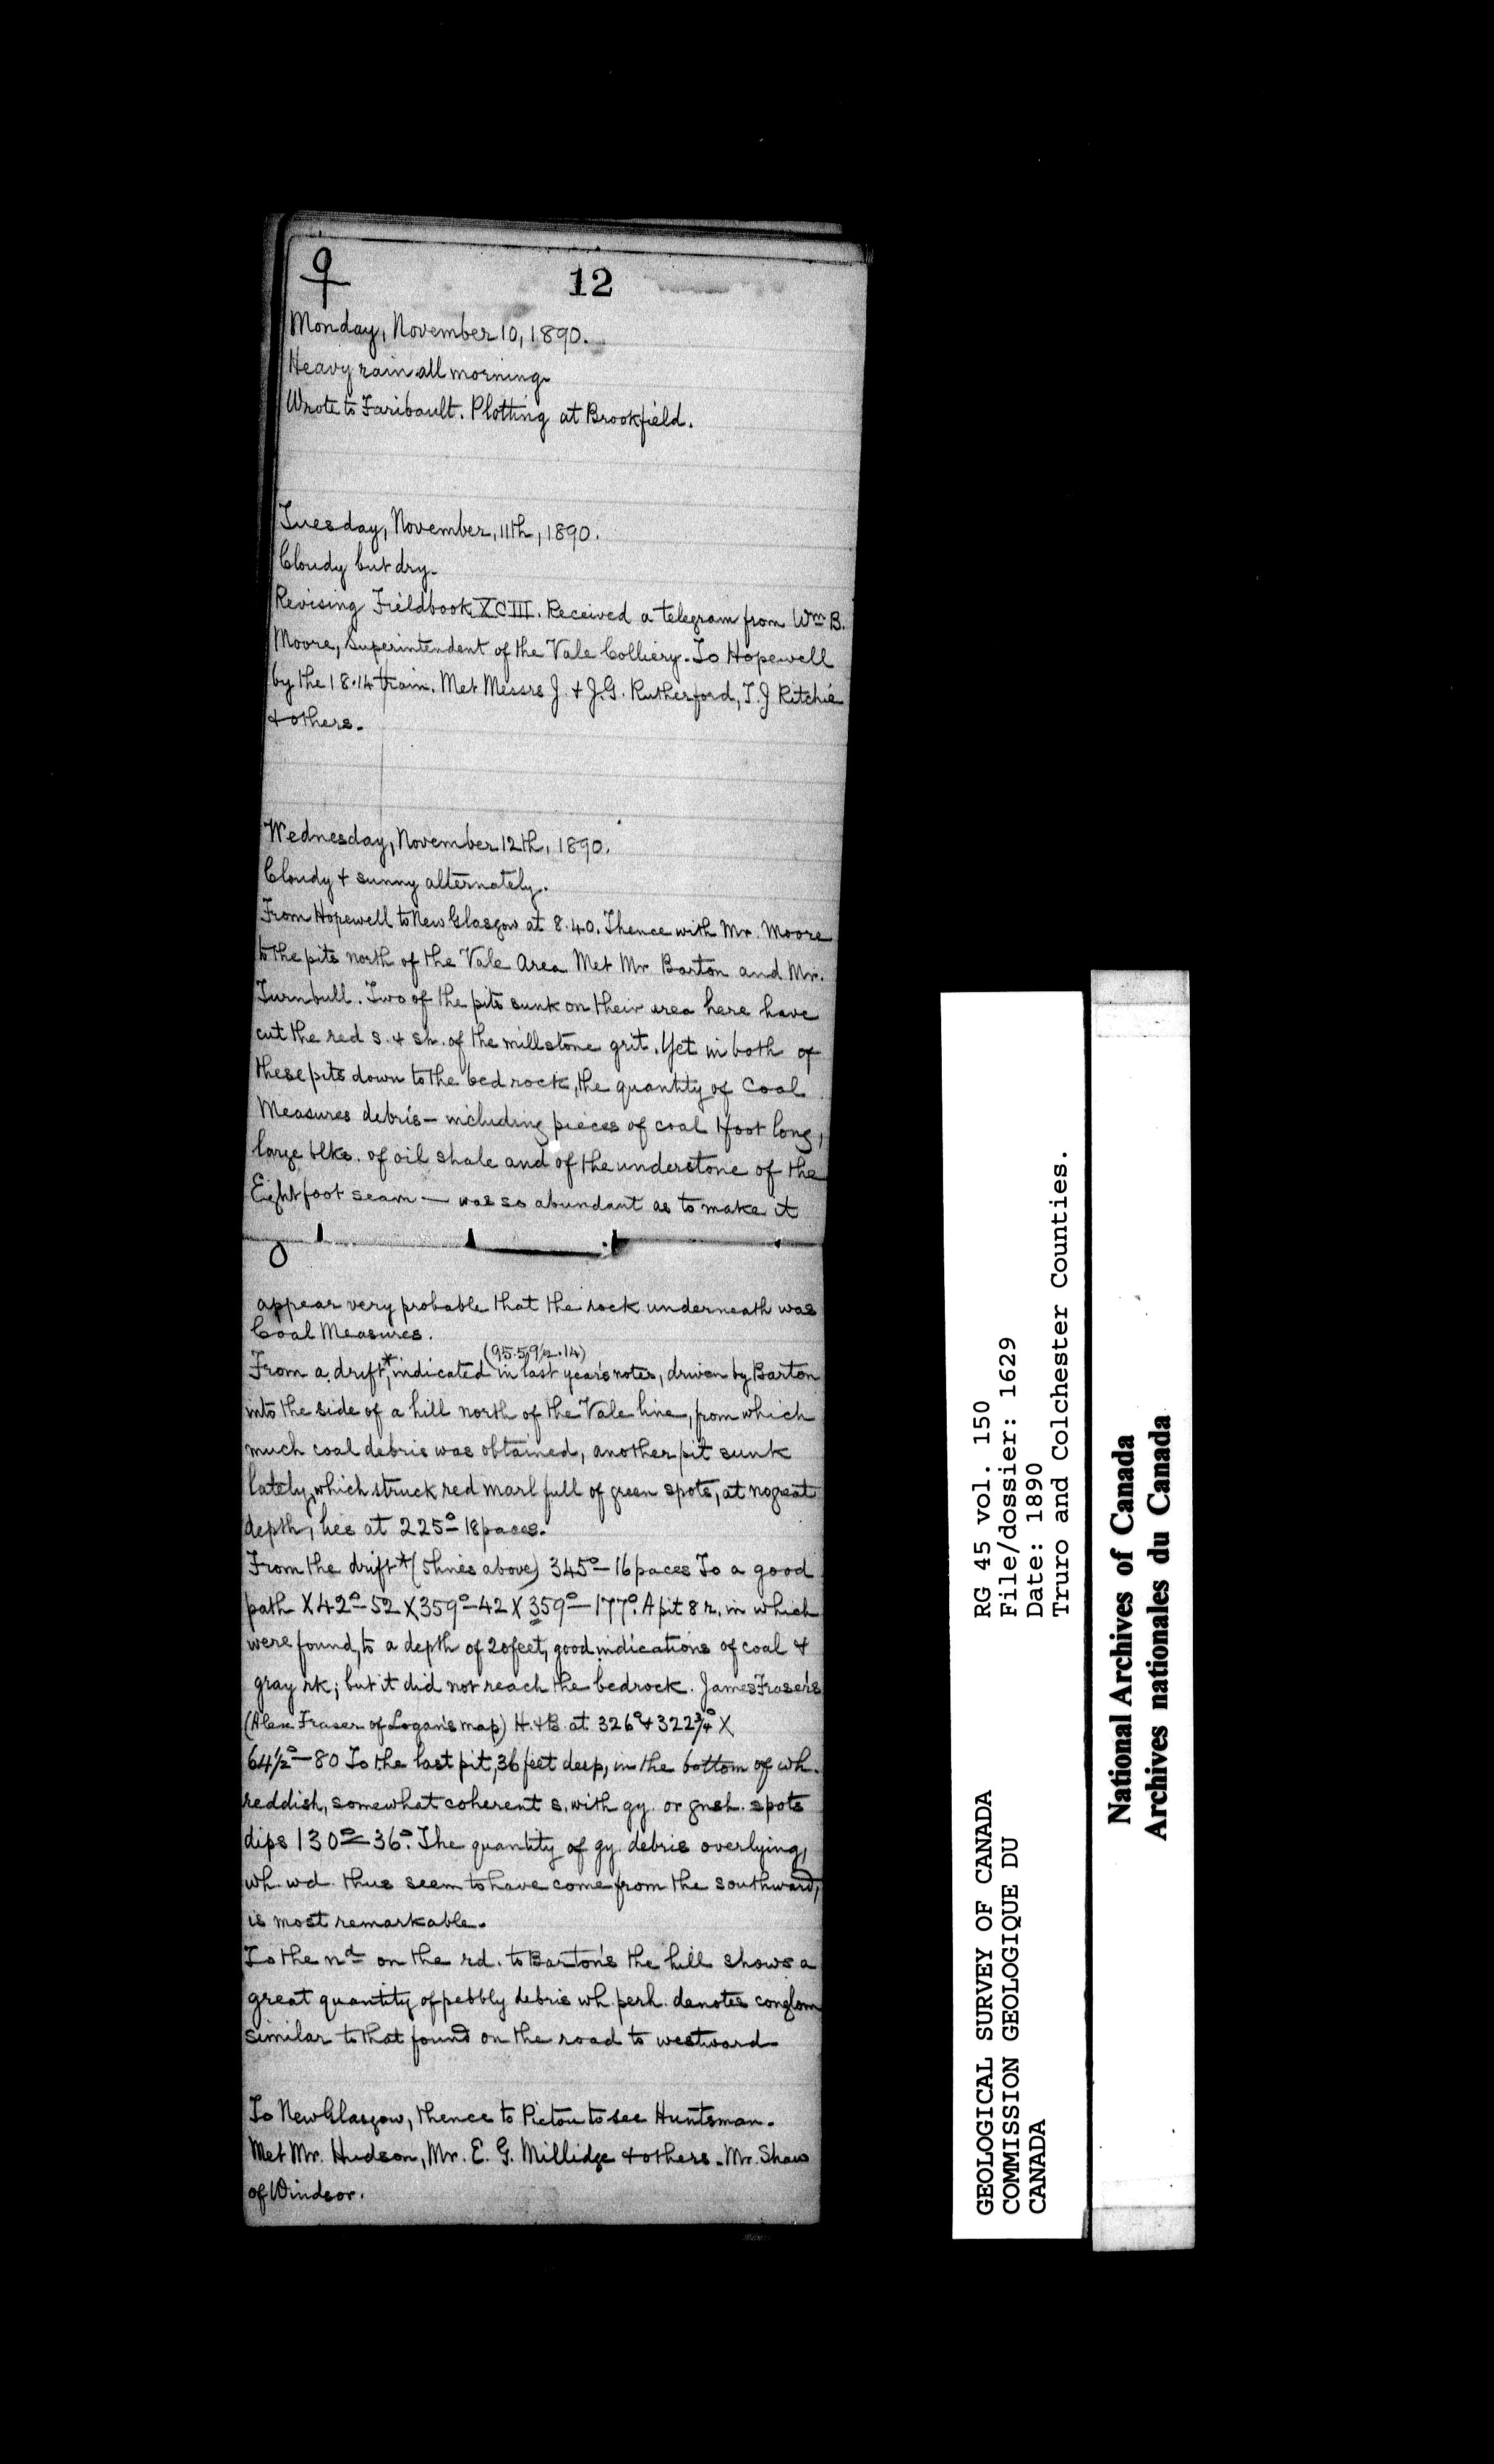 9
12
Monday, November 10, 1890.
Heavy rain all morning.
Wrote to Faribault. Plotting at Brookfield.
Tuesday, November, 11th, 1890.
Cloudy but dry.
Revising Fieldbook XCIII. Received a telegram from Wm B.
Moore, Superintendent of the Vale Colliery. To Hopewell
by the 18.14 train. Met Messrs J. & J.G. Rutherford, T.J Ritchie
& others.
Wednesday, November 12th, 1890.
Cloudy & sunny alternately.
From Hopewell to New Glasgow at 8.40. Thence with Mr. Moore
to the pits north of the Vale Area. Met Mr Barton and Mr.
Turnbull. Two of the pits sunk on their area here have
cut the red s. & sh. of the millstone grit. Yet in both of
these pits down to the bed rock, the quantity of Coal
Measures debris — including pieces of coal 1 foot long,
large blks. of oil shale and of the understone of the
Eight foot seam — was so abundant as to make it
appear very probable that the rock underneath was
Coal Measures.
(95.59½.14)
From a drift,* indicated in last year's notes, driven by Barton
into the side of a hill north of the Vale line, from which
much coal debris was obtained, another pit sunk
lately, which struck red marl full of green spots, at no great
depth, lies at 225° – 18 paces.
From the drift * (5 lines above) 345° – 16 paces To a good
path X 42° – 52 X 359° – 42 X 359° – 177°. A pit 8 r. in which
were found, to a depth of 20 feet, good indications of coal &
gray rk; but it did not reach the bedrock. James Fraser's
(Alex Fraser of Logan's map) H. & B. at 326° & 322¾° X
64½° – 80 To the last pit, 36 feet deep, in the bottom of wh.
reddish, somewhat coherent s. with gy. or gnsh. spots
dips 130° – 36°. The quantity of gy. debris overlying,
wh. wd. thus seem to have come from the southward,
is most remarkable.
To the nd on the rd. to Barton's the hill shows a
great quantity of pebbly debris wh. perh. denotes conglom
similar to that found on the road to westward
To New Glasgow, thence to Pictou to see Huntsman.
Met Mr. Hudson, Mr. E. G. Millidge & others. Mr. Shaw
of Windsor.
GEOLOGICAL SURVEY OF CANADA
COMMISSION GEOLOGIQUE DU
CANADA
RG 45 vol. 150
File/dossier: 1629
Date: 1890
Truro and Colchester Counties.
National Archives of Canada
Archives nationales du Canada